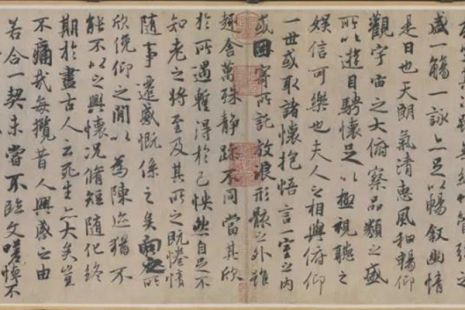 盛一觴一詠亦足以暢叙幽情
是日也天朗氣清惠風和暢仰
觀宇宙之大俯察品類之盛
所以遊目騁懷足以極視聽之
娛信可樂也夫人之相與俯仰
一世或取諸懷抱悟言一室之內
或因寄所託放浪形骸之外雖
趣舍萬殊靜躁不同當其欣
於所遇暫得於己怏然自足不
知老之將至及其所之既惓情
隨事遷感慨係之矣向之所
欣俛仰之閒以為陳迹猶不
能不以之興懷況脩短隨化終
期於盡古人云死生亦大矣豈
不痛哉每攬昔人興感之由
若合一契未嘗不臨文嗟悼不